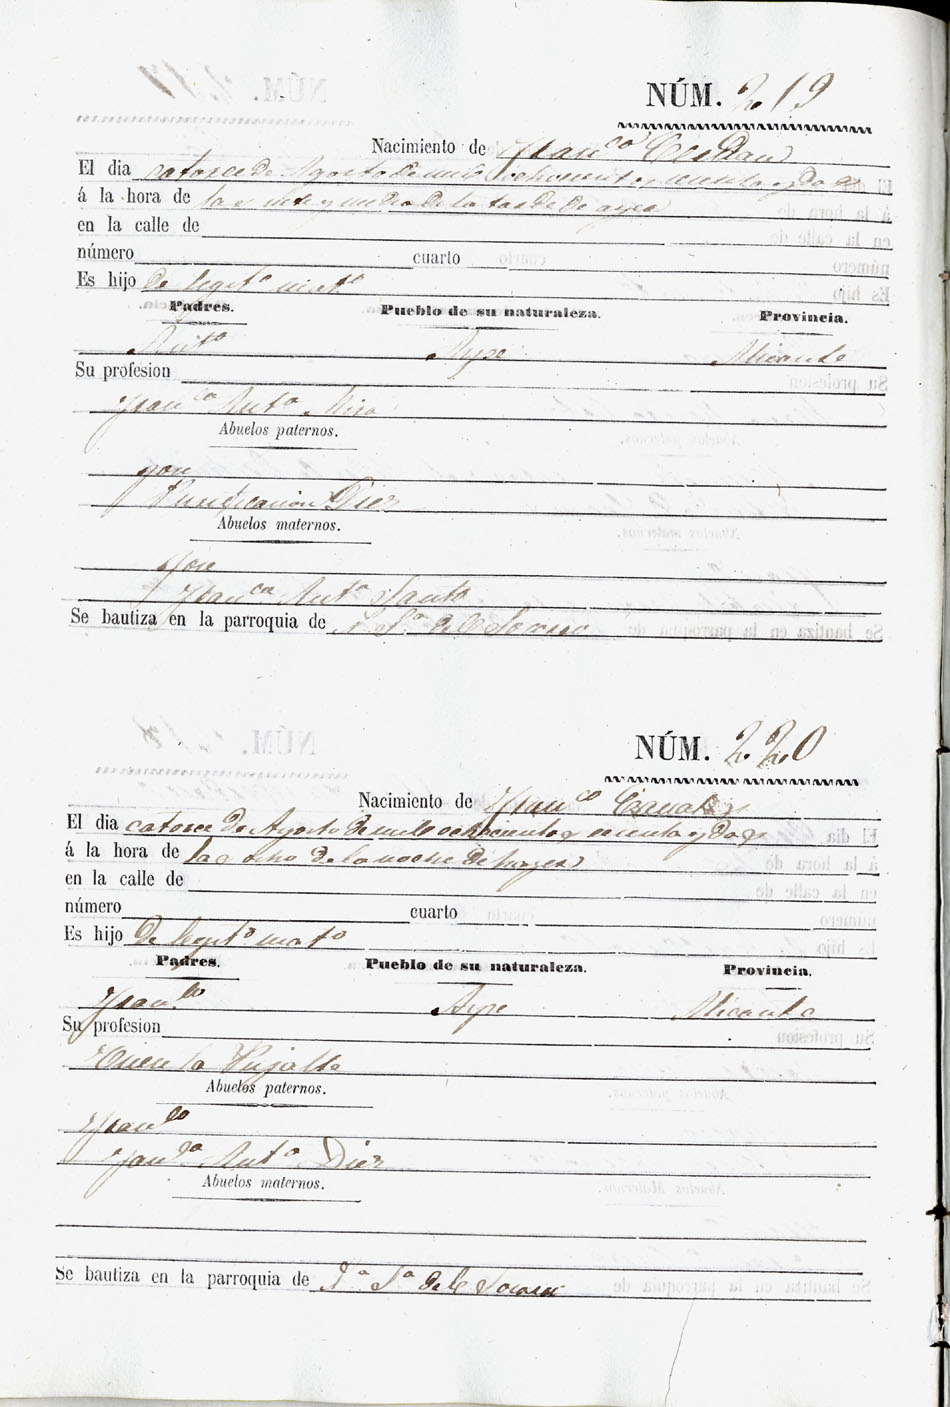 NÚM. 219
Nacimiento de Franco Cerdan
El dia catorce de Agosto de mil ochocientos sesenta y dos
á la hora de las siete y media de la tarde de ayer
en la calle de
número cuarto
Es hijo de legito mato
Padres. Pueblo de su naturaleza. Provincia.
Anto Aspe Alicante
Su profesion
Franca Anta Mira
Abuelos paternos.
Jose
Purificacion Diez
Abuelos maternos.
Jose
Franca Anta
Se bautiza en la parroquia de Sa del Socorro
NÚM. 220
Nacimiento de Franco
El dia catorce de Agosto de mil ochocientos sesenta y dos
á la hora de las ocho de la noche de
en la calle de
número cuarto
Es hijo de legito mato
Padres. Pueblo de su naturaleza. Provincia.
Franco Aspe Alicante
Su profesion
Pujalte
Abuelos paternos.
Franco
Franca Anta Diez
Abuelos maternos.
Se bautiza en la parroquia de Na Sa del Socorro